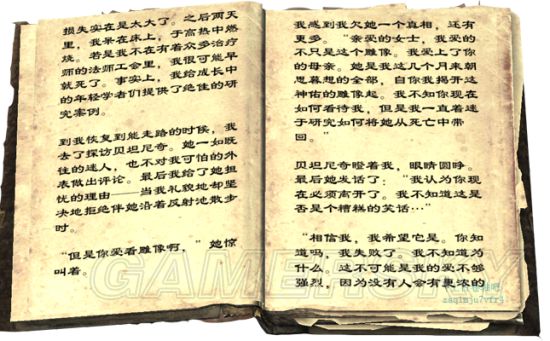 损失实在是太大了。之后两天
里，我呆在床上，于高热中燃
烧。若是我不在有着众多治疗
师的法师工会里，我很可能早
就死了。事实上，我给成长中
的年轻学者们提供了绝佳的研
究案例。
到我恢复到能走路的时候，我
去了探访贝坦尼奇。她一如既
往的迷人，也不对我可怕的外
表做出评论。最后我给了她担
忧的理由——当我礼貌地却坚
决地拒绝伴她沿着反射池散步
时。
“但是你爱看雕像啊，”她惊
叫着。
我感到我欠她一个真相，还有
更多。“亲爱的女士，我爱的
不只是这个雕像。我爱上了你
的母亲。她是我这几个月来朝
思暮想的全部，自你我揭开这
神佑的雕像起。我不知你现在
如何看待我，但是我一直着迷
于研究如何将她从死亡中带
回。”
贝坦尼奇瞪着我，眼睛圆睁。
最后她发话了：“我认为你现
在必须离开了。我不知道这是
否是个糟糕的笑话…”
“相信我，我希望它是。你知
道吗，我失败了。我不知道为
什么。这不可能是我的爱不够
强烈，因为没有人会有更浓的
GAMERSKY
zaqlmju7vfr4